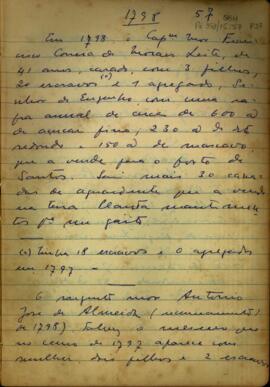 1798
57
Em 1798, o Cap.m Mor Fran
cisco Correa de Moraes Leite, de
41 annos, casado, com 3 filhos,
20 escravos (x) e 1 agregado, Se
nhor de Engenho com uma
annual de cerca de 600 @
de açucar fino, 230 @ de
redondo e 150 @ de mascavo
que a vende para o porto de
Santos. Seu mais 30 cana
das de aguardente que a vende
na terra Planta mantimen
tos p.a seu gasto.
(x) Tinha 18 escravos e 0 agregados
em 1797. —
O sargento mor Antonio
José de Almeida (recenseamento
de 1798). Talvez o mesmo que
no censo de 1797 aparece com
mulher, dois filhos e 2 escravos